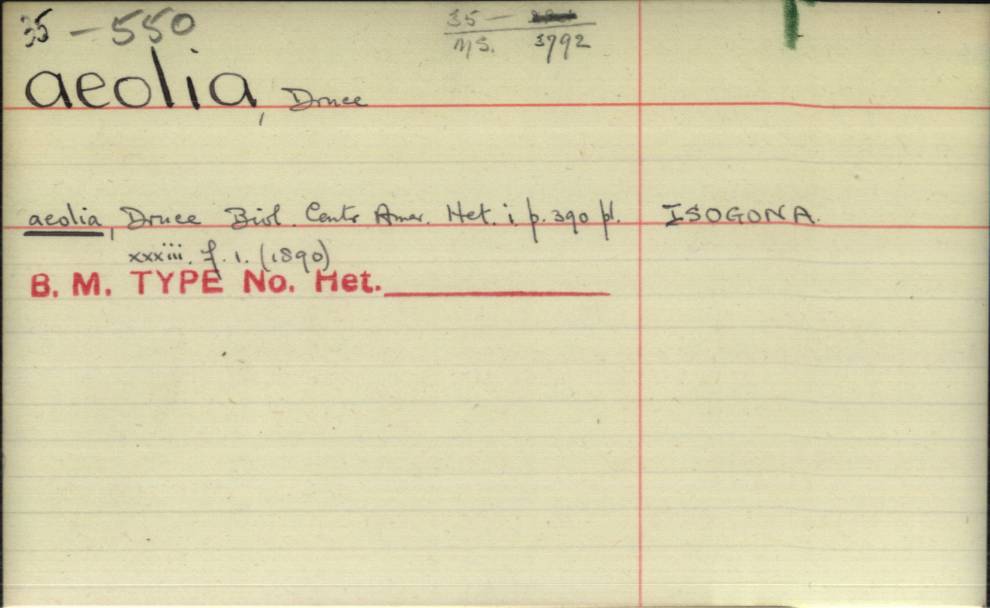 35 – 550
35 –
MS. 3792
aeolia, Druce
aeolia, Druce Biol. Centr Amer. Het. i p. 390 pl. ISOGONA.
xxxiii. f. 1. (1890)
B. M. TYPE No. Het.